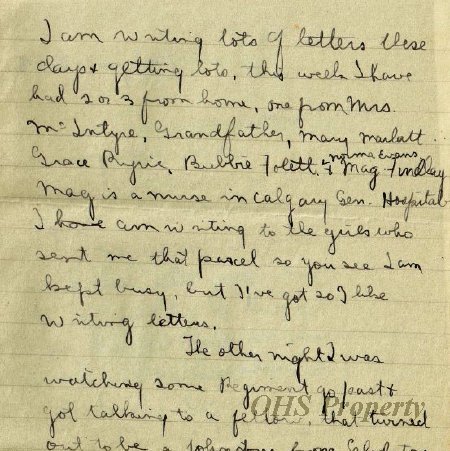 I am writing lots of letters these
days & getting lots, this week I have
had 2 or 3 from home, one from Mrs.
McIntyre, Grandfather, Mary Marlatt
Norma Evans
Grace Pyrie, Bubbie & Mag Findlay
Mag is a nurse in Calgary Gen. Hospital
I have am writing to the girls who
sent me that parcel so you see I am
kept busy, but I've got so I like
writing letters.
The other night I was
watching some Regiment go past &
got talking to a fellow, that turned
OHS Property
out to be a